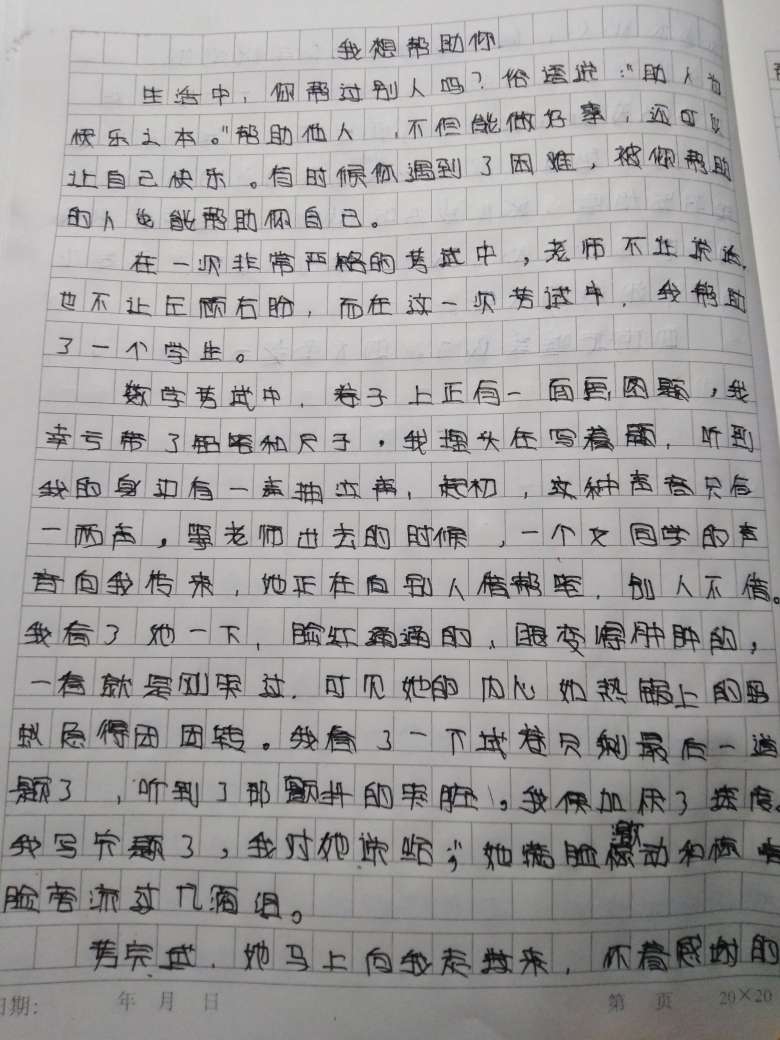 我想帮助你
生活中，你帮过别人吗？俗语说："助人为
快乐之本。"帮助他人，不但能做好事，还可以
让自己快乐。有时候你遇到了困难，被你帮助
的人也能帮助你自己。
在一次非常严格的考试中，老师不让说话，
也不让左顾右盼，而在这一次考试中，我帮助
了一个学生。
数学考试中，卷子上正有一面画图题，我
幸亏带了铅笔和尺子。我埋头在写着题，听到
我的身边有一声抽泣声，起初，这种声音只有
一两声，等老师出去的时候，一个女同学的声
音向我传来，她正在向别人借铅笔，别人不借。
我看了她一下，脸红通通的，眼变得肿肿的，
一看就是刚哭过，可见她的内心如热锅上的蚂
蚁急得团团转。我看了一下试卷只剩最后一道
题了，听到了那颤抖的哭腔，我便加快了速度。
我写完题了，我对她说给，她满脸激动和
脸旁流过几滴泪。
考完试，她马上向我走过来，怀着感谢的
日期： 年 月 日 第 页 20×20